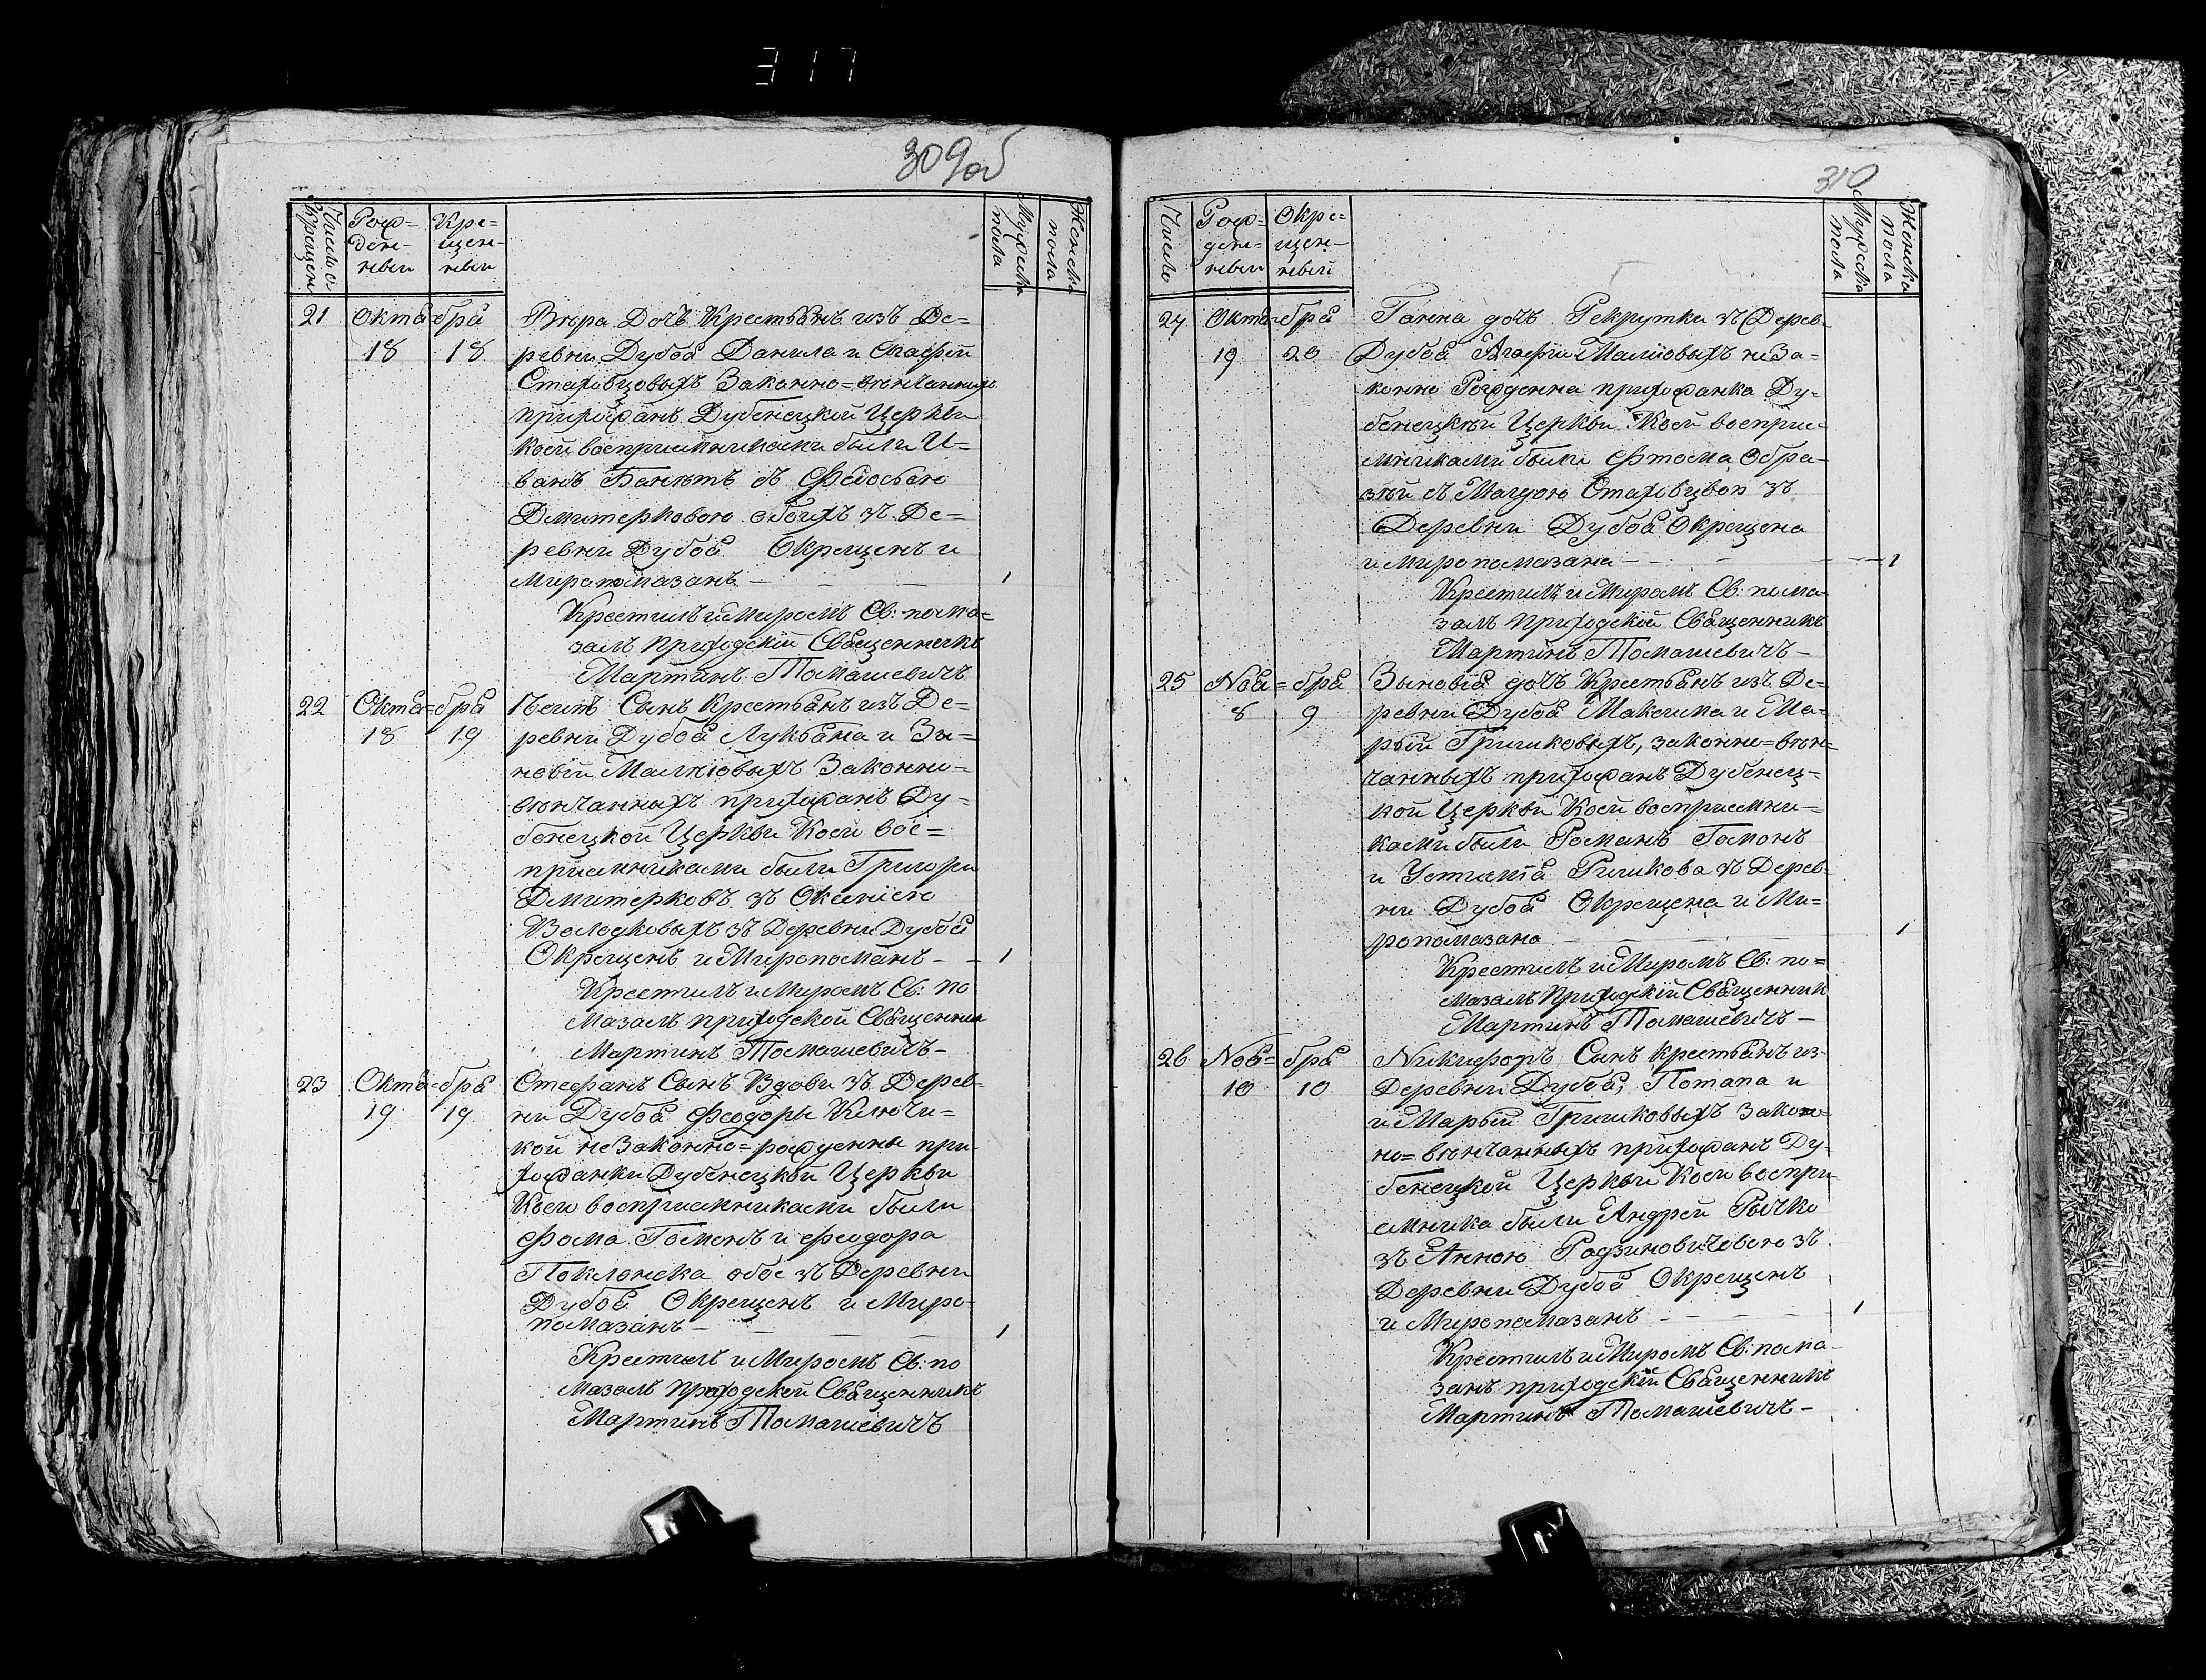 317
309об
Число Крещен
Рож=
ден=
ный
Кре=
щен=
ный
Мужеска
пола
Женска
пола
21 Октя=бря Вѣра Дочъ Крестьянъ изъ Де=
18 18 ревни Дубоя Данила и Агафіи
Стаховцовыхъ Законно=вѣнчанныхъ
прихожанъ Дубенецкой Церкви
коей воспріемниками были И=
ванъ Банютъ съ Федосьею
Дмитерковою обоихъ зъ Де=
ревни Дубоя Окрещенъ и
Миропомазанъ — 1
Крестилъ и Миромъ Св: пома=
залъ приходскій Священникъ
Мартинъ Томашевичъ
22 Октя=бря Сынъ Крестьянъ изъ Де=
18 19 ревни Дубоя Лукьяна и Зи=
новіи Малюховыхъ Законно=
вѣнчанныхъ прихожанъ Ду=
бенецкой Церкви Коей вос=
пріемниками были Григори
Дмитерковъ зъ Оксинією
Володковыхъ зъ Деревни Дубоя
Окрещенъ и Миропоманъ — 1
Крестилъ и Миромъ Св: по
мазалъ приходской Священник
Мартинъ Томашевичъ —
23 Октя=бря Стефанъ Сынъ Вдови зъ Дерев=
19 19 ни Дубоя Феодоры Ключи=
кой не Законно=рожденны при
хожанки Дубенецкой Церкви
Коего воспріемниками были
Фома Гомонъ и Феодора
Поклонска обое зъ Деревни
Дубоя Окрещенъ и Миро=
помазанъ — 1
Крестилъ и Миромъ Св: по
мазалъ приходской Священникъ
Мартинъ Томашевичъ
310
Число
Рож=
ден=
ный
Окре=
щен=
ный
Мужеска
пола
Женска
пола
24 Октя=бря Ганна дочъ Рекрутки зъ Дерев.
19 20 Дубоя Агафіи Малюховыхъ не За=
конно Рожденна прихожанка Ду=
бенецкой Церкви Коей воспріе=
мниками были Фтома Обра=
зъ Магдою Стаховцвой зъ
Деревни Дубоя Окрещена
и миропомазана — 1
Крестилъ и Миромъ Св: пома
залъ приходской Священникъ
Мартинъ Томашевичъ —
25 Ноя=бря Зыновія дочъ Крестьянъ изъ Де=
8 9 ревни Дубоя Максима и Ма=
рьи Гришковыхъ, законно=вѣн=
чанныхъ прихожанъ Дубенец=
кой Церкви Коей воспріемни=
ками были Романъ Гомонъ
и Устимія Гишкова зъ Дерев=
ни Дубоя Окрещена и Ми=
ропомазана 1
Крестилъ и Миромъ Св: по=
мазалъ Приходскій Священник
Мартинъ Томашевичъ —
26 Ноя=бря Никифоръ Сынъ крестьянъ из
10 10 Деревни Дубоя, Потапа и
и Марьи Гришковыхъ Закон=
но=вѣнчанныхъ прихожанъ Ду=
бенецкой Церкви Коей воспри
емника были Андрей Рычко
зъ Анною Родзиновичовою зъ
Деревни Дубоя Окрещенъ
и Миропомазанъ — 1
Крестилъ и Миромъ Св: пома=
занъ приходскій Священникъ
Мартинъ Томашевичъ —